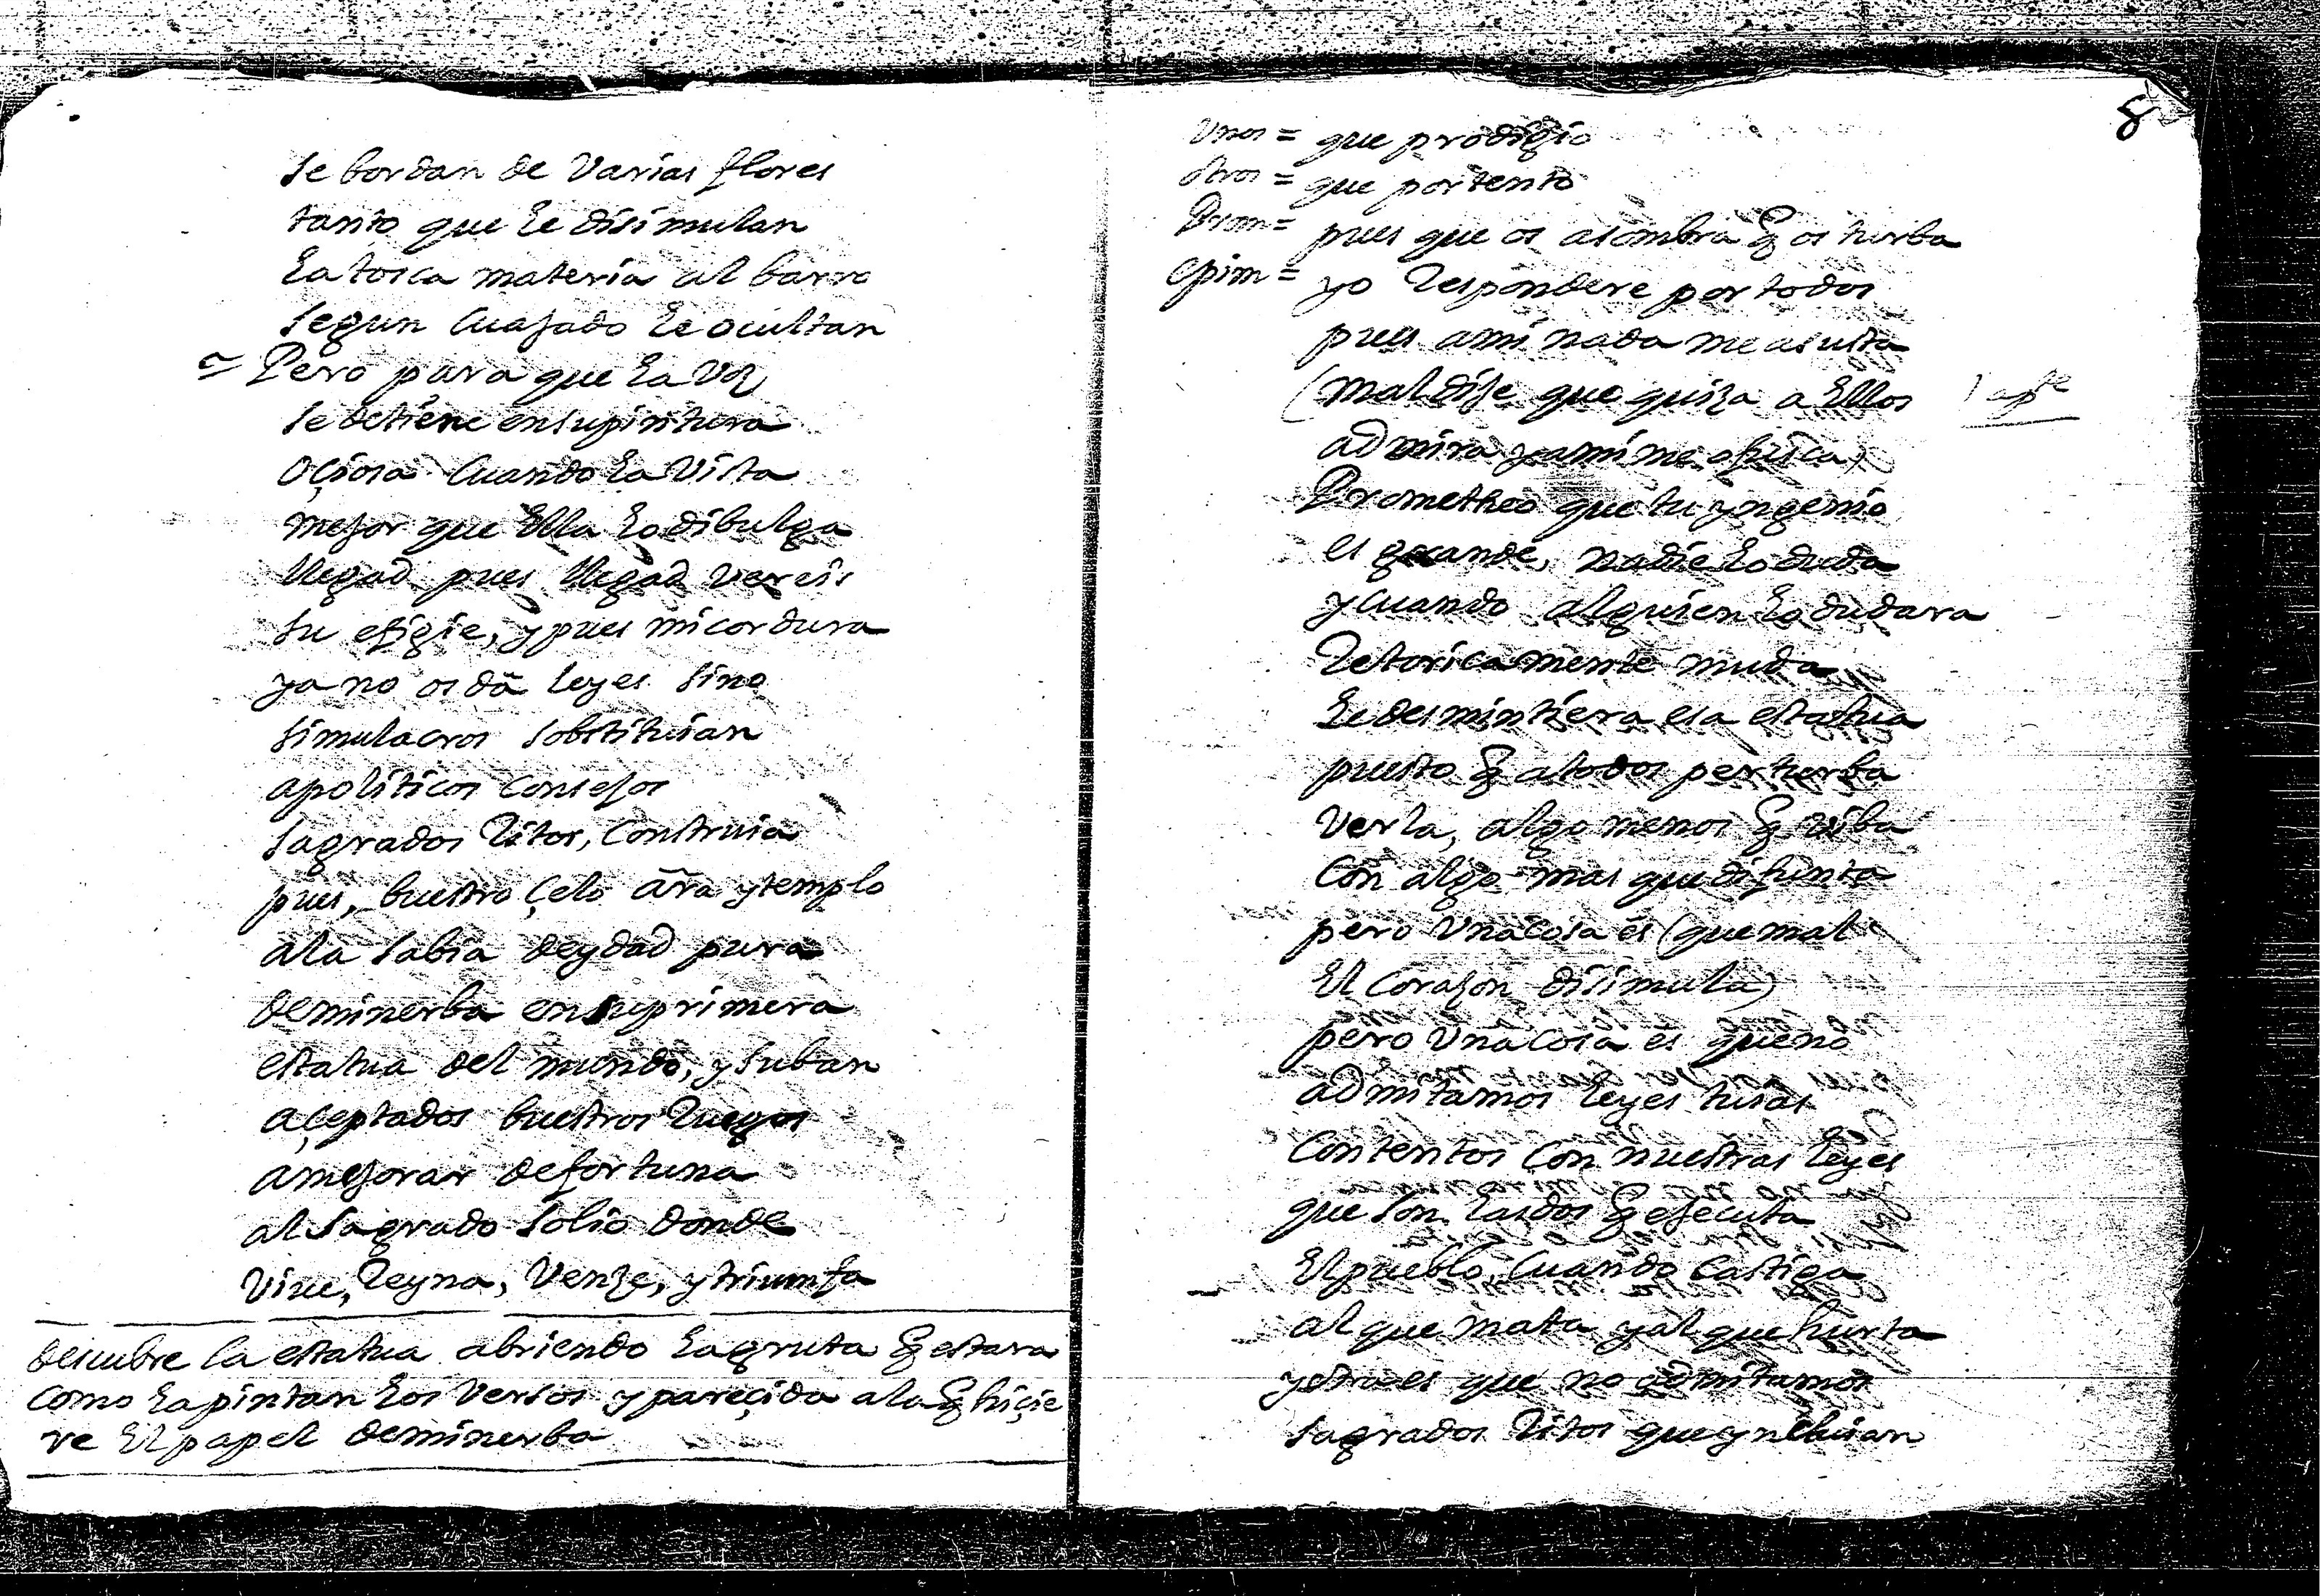 se bordan de Varias flores
tanto que le disimulan
la tosca materia al barro
segun Cuajado le ocultan
= Pero para que la Voz
se detiene en su pintura
oçiosa Cuando la Vista
mejor que Ella lo dibulga
llegad pues llegad vereis
su efigie, y pues mi cordura
ya no os dã leyes sino
simulacros sobstituian
a politicos Consejos
sagrados Ritos, Construia
pues, buestro çelo ãra y templo
a la sabia deydad pura
de minerba en su primera
estatua del mundo, y suban
açeptados buestros Ruegos
a mejorar de fortuna
al sagrado solio donde
Viue, Reyna, Venze, y triumfa
descubre la estatua abriendo la gruta q estara
como la pintan los Versos y pareçida a la q hiçie
re El papel de minerba
8
Vnos = que prodigio
otros = que portento
Prom = pues que os asombra q os turba
epim = yo Respondere por todos
pues a mi nada me asusta
(mal dije que quiza a Ellos | apte
admira y a mi me ofusca)
Prometheo que tu yngenio
es grande, nadie lo duda
y cuando alguien lo dudara
Retoricamente muda
le desmintiera esa estatua
puesto q a todos perturba
Verla, algo menos q viba
Con algo mas que difunta
pero Vna cosa es (que mal
El Corazon disimula)
pero Vna cosa es que no
admitamos leyes tuias
Contentos Con nuestras leyes
que son las dos q ejecuta
El pueblo, Cuando Castiga
al que mata y al que hurta
y otra es que no admitamos
sagrados Ritos que yncluian